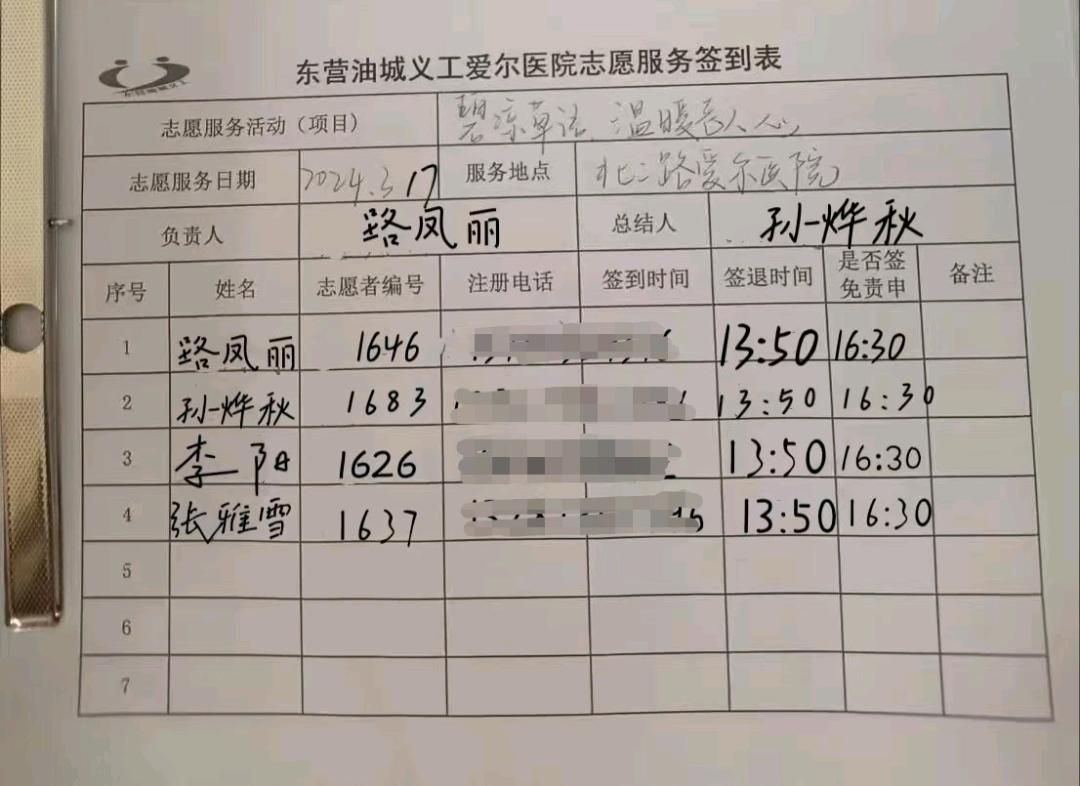 东营油城义工爱尔医院志愿服务签到表
东营油城义工
志愿服务活动（项目） 温暖 人心
志愿服务日期 2024.3.17 服务地点 北二路爱尔医院
负责人 路凤丽 总结人 孙烨秋
序号 姓名 志愿者编号 注册电话 签到时间 签退时间 是否签免责申 备注
1 路凤丽 1646 13:50 16:30
2 孙烨秋 1683 13:50 16:30
3 李阳 1626 13:50 16:30
4 张雅雪 1637 13:50 16:30
5
6
7